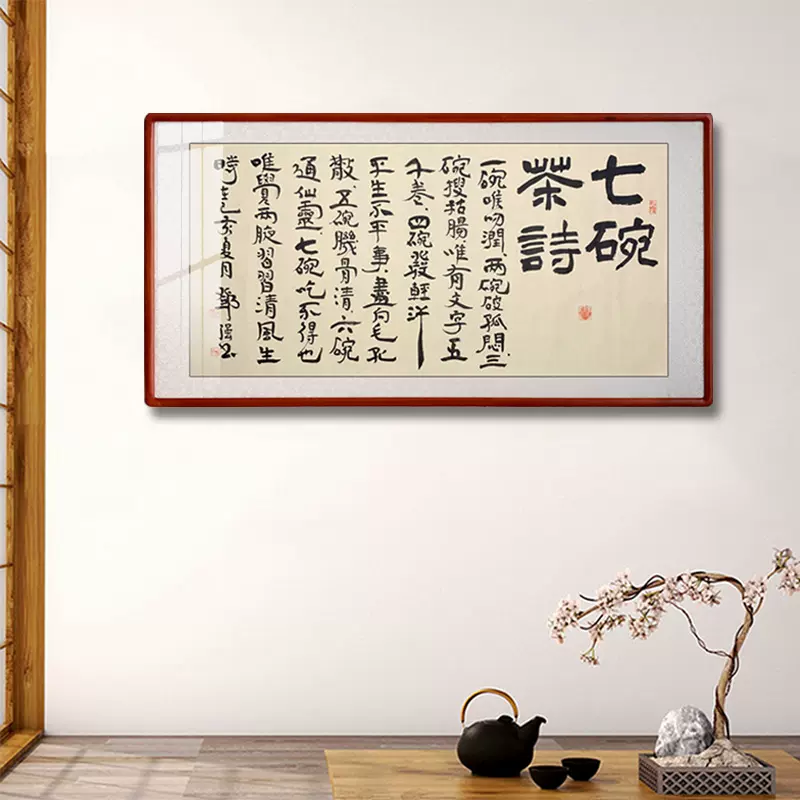 七碗
茶詩
一碗喉吻潤、两碗破孤悶、三
碗搜枯腸、唯有文字五
千卷、四碗發輕汗
平生不平事、盡向毛孔
散、五碗骨清、六碗
通仙靈、七碗吃不得也
唯覺两腋習習清風生
時亥夏月鄧强书